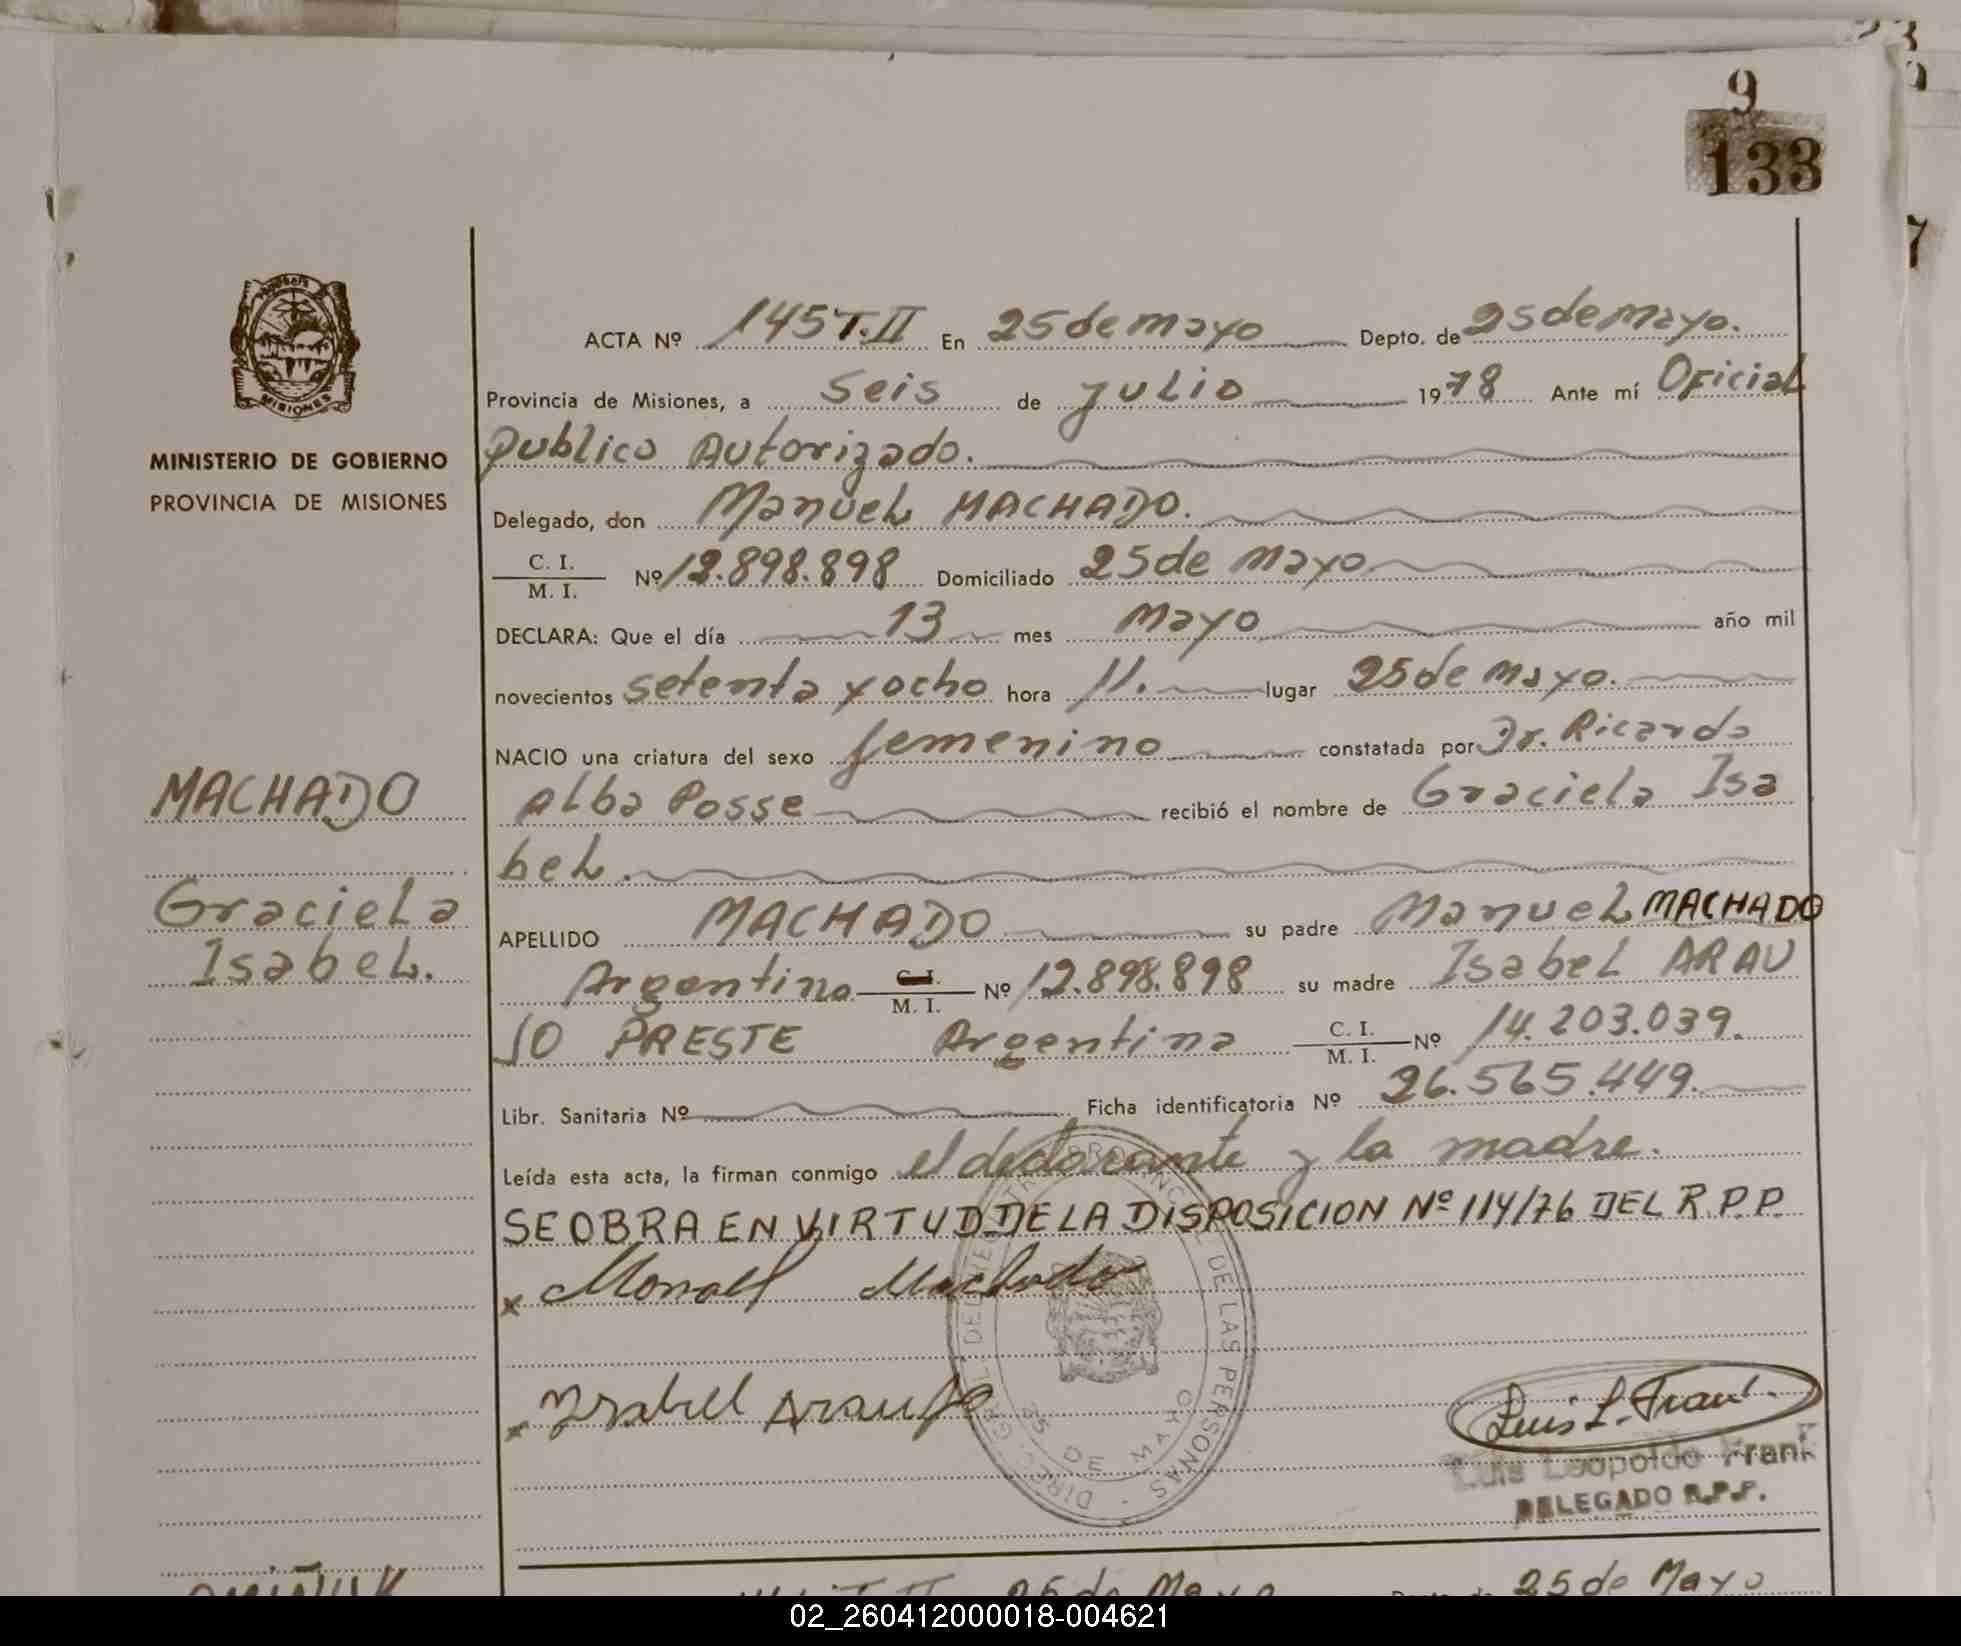 9
133
MISIONES
MINISTERIO DE GOBIERNO
PROVINCIA DE MISIONES
MACHADO
Graciela
Isabel.
ACTA Nº 145 T.II En 25 de mayo Depto. de 25 de mayo.
Provincia de Misiones, a seis de julio 1978 Ante mí Oficial
publico Autorizado.
Delegado, don Manuel MACHADO.
C. I.
M. I. Nº 12.898.898 Domiciliado 25 de mayo
DECLARA: Que el día 13 mes mayo año mil
novecientos setenta y ocho hora 11. lugar 25 de mayo.
NACIO una criatura del sexo femenino constatada por Dr. Ricardo
Alba Posse recibió el nombre de Graciela Isa
bel.
APELLIDO MACHADO su padre Manuel MACHADO
Argentino C. I. M. I. Nº 12.898.898 su madre Isabel ARAU
JO PRESTE Argentina C. I. M. I. Nº 14.203.039.
Libr. Sanitaria Nº Ficha identificatoria Nº 26.565.449.
Leída esta acta, la firman conmigo el declarante y la madre.
SE OBRA EN VIRTUD DE LA DISPOSICION Nº 114/76 DEL R.P.P.
x Machado
x Ysabel Araujo
DE LAS PERSONAS
25 DE MAYO
Luis L. Frank
Luis Leopoldo Frank
DELEGADO R.P.P.
25 de Mayo 25 de Mayo
02_260412000018-004621